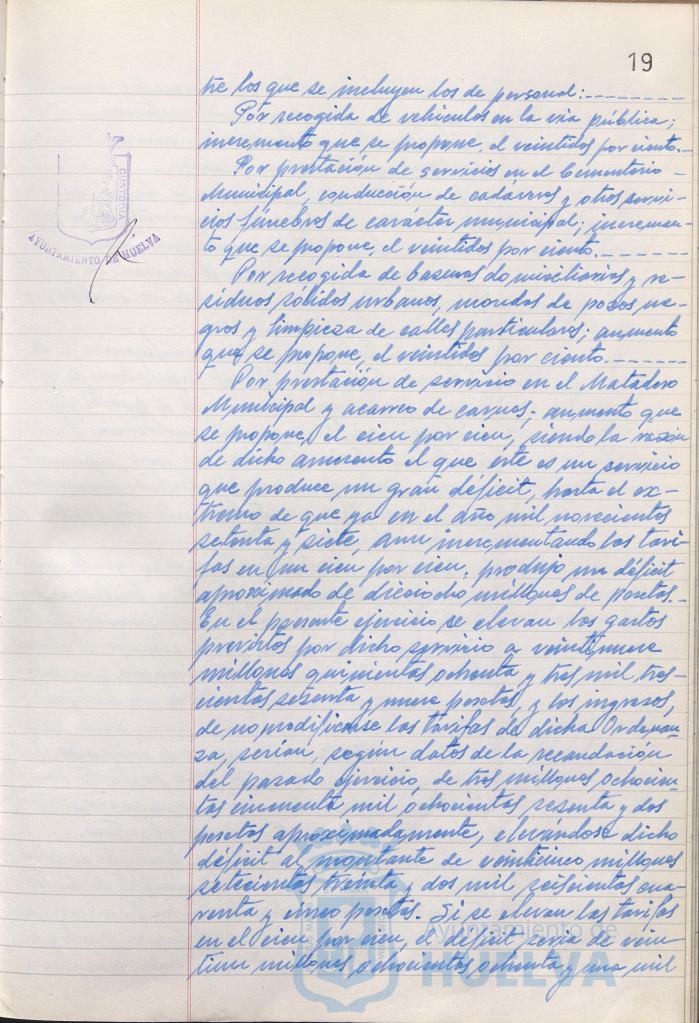 19
tre los que se incluyen los de personal:
Por recogida de vehículos en la vía pública;
incremento que se propone, el veintidos por ciento.-
Por prestación de servicios en el Cementerio
Municipal, conducción de cadáveres y otros servi-
cios fúnebres de carácter municipal; incremen-
to que se propone, el veintidos por ciento.
Por recogida de basuras domiciliarias y re-
siduos sólidos urbanos, mondas de pozos ne-
gros y limpieza de calles particulares; aumento
que se propone, el veintidos por ciento.
Por prestación de servicio en el Matadero
Municipal y acarreo de carnes; aumento que
se propone, el cien por cien, siendo la razón
de dicho aumento el que este es un servicio
que produce un gran déficit, hasta el ex-
tremo de que ya en el año mil novecientos
setenta y siete, aun incrementando las tari-
fas en un cien por cien, produjo un déficit
aproximado de dieciocho millones de pesetas.-
En el presente ejercicio se elevan los gastos
previstos por dicho servicio a veintinueve
millones quinientas ochenta y tres mil tres-
cientas sesenta y nueve pesetas, y los ingresos,
de no modificarse las tarifas de dicha Ordenan-
za, serían, según datos de la recaudación
del pasado ejercicio, de tres millones ochocien-
tas cincuenta mil ochocientas sesenta y dos
pesetas aproximadamente, elevándose dicho
déficit al montante de veinticinco millones
setecientas treinta y dos mil seiscientas cua-
renta y cinco pesetas. Si se elevan las tarifas
en el cien por cien, el déficit sería de vein-
tiun millones ochocientas ochenta y una mil
CUSTODIA
AYUNTAMIENTO DE HUELVA
Ayuntamiento de
HUELVA